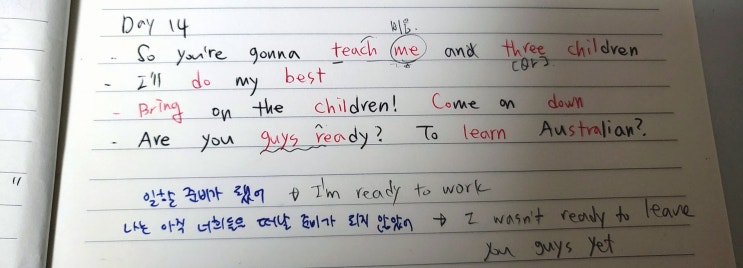 Day 14
- So you're gonna teach me and three children
[θr]
- I'll do my best
- Bring on the children! Come on down
- Are you guys ready? To learn Australian?.
"
일할 준비가 됐어 → I'm ready to work
나는 아직 너희들을 떠날 준비가 되지 않았어 → I wasn't ready to leave
you guys yet